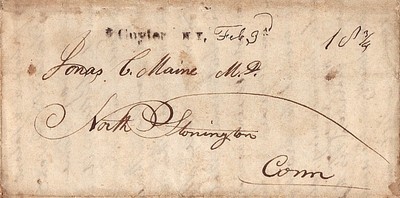 Cuyler N.Y. Feb. 3d 18 3/4
Jonas C. Maine M.D.
North Stonington
Conn